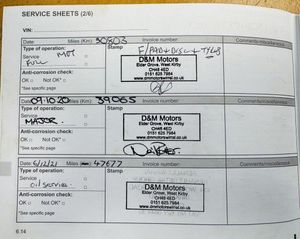 SERVICE SHEETS (2/6)
VIN:
Date: Miles (Km): 30803 Invoice number: Comments/miscellaneous
Type of operation: Stamp F/PADS + DISCS + TYRES
Service MOT
FULL
D&M Motors
Elder Grove, West Kirby
CH48 4ED
0151 625 7984
www.dmmotorswirral.co.uk
Anti-corrosion check:
OK □ Not OK* □
*See specific page
Date: 09.10.20 Miles (Km): 39065 Invoice number: Comments/miscellaneous
Type of operation: Stamp
Service
MAJOR.
D&M Motors
Elder Grove, West Kirby
CH48 4ED
0151 625 7984
www.dmmotorswirral.co.uk
Anti-corrosion check:
OK □ Not OK* □
*See specific page
Date: 6/12/21 Miles (Km): 47677 Invoice number: Comments/miscellaneous
Type of operation: Stamp
Service
oil service
D&M Motors
Elder Grove, West Kirby
CH48 4ED
0151 625 7984
www.dmmotorswirral.co.uk
Anti-corrosion check:
OK □ Not OK* □
*See specific page
6.14